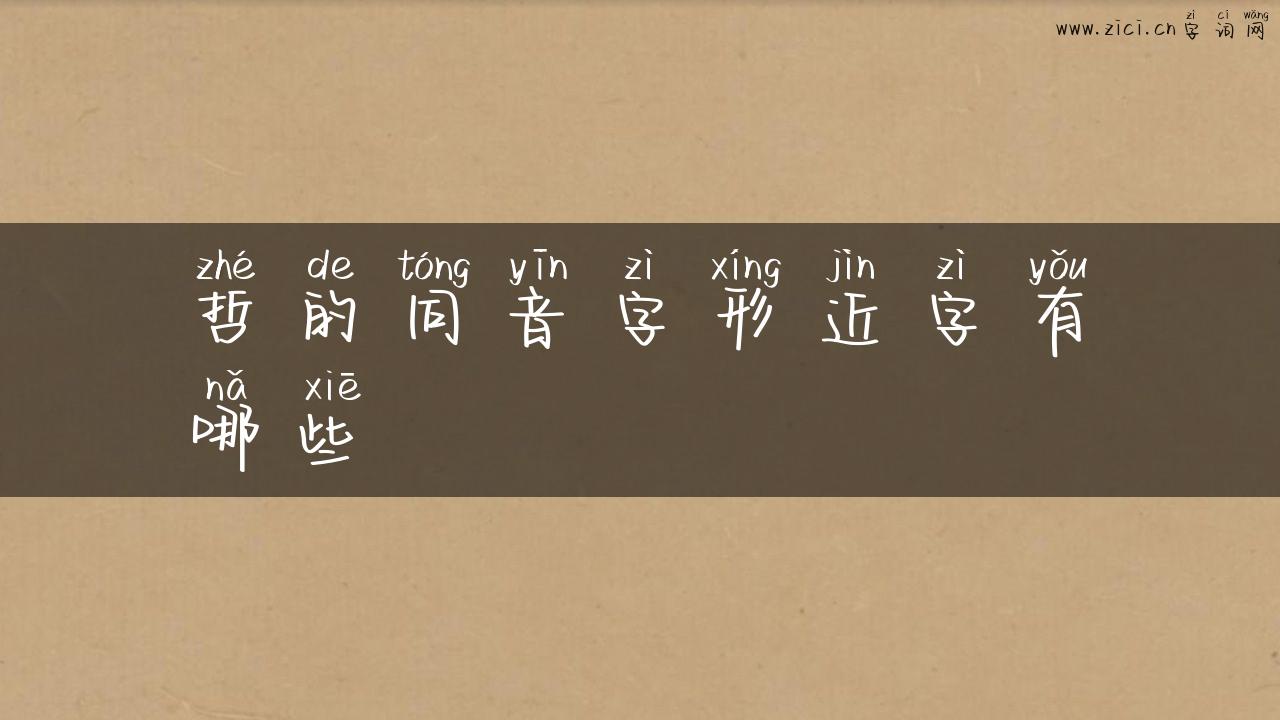 zì cí wǎng
www.zici.cn 字词网
zhé de tóng yīn zì xíng jìn zì yǒu
哲的同音字形近字有
nǎ xiē
哪些